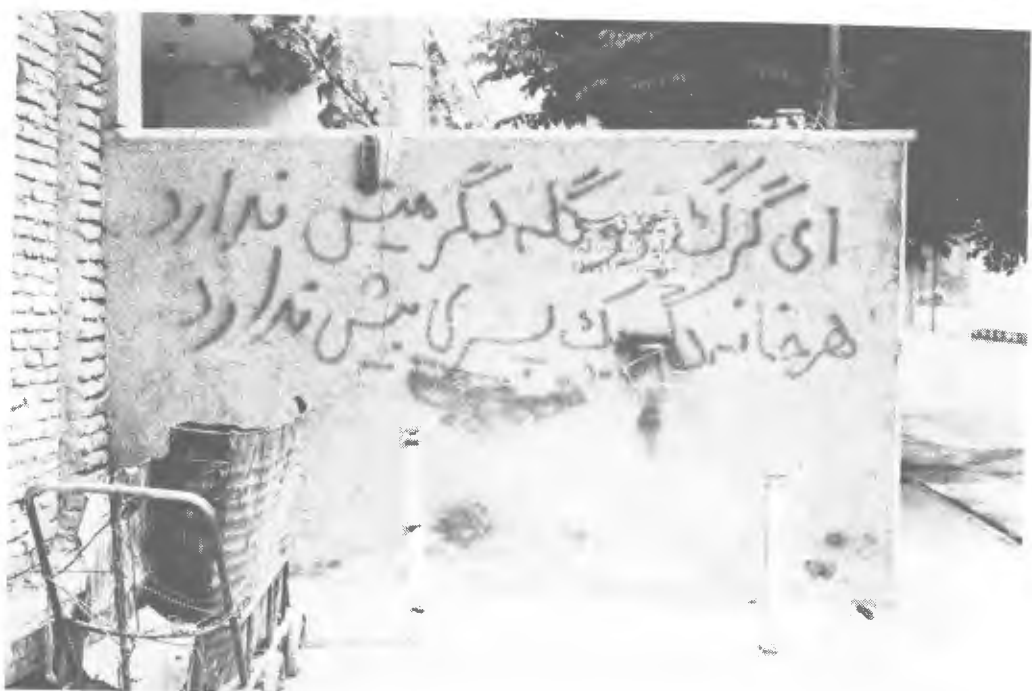 ای گرگ برو گله دگر میش ندارد
هر خانه دگر یک پسری بیش ندارد